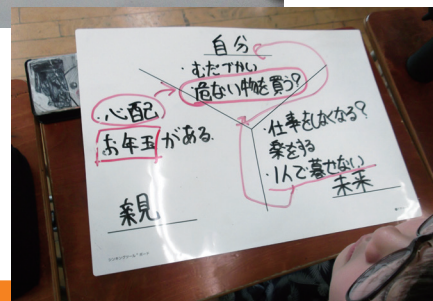 自分
・むだづかい
・危ない物を買う?
心配
お年玉がある.
親
・仕事をしなくなる?
楽をする
・1人で暮せない
未来